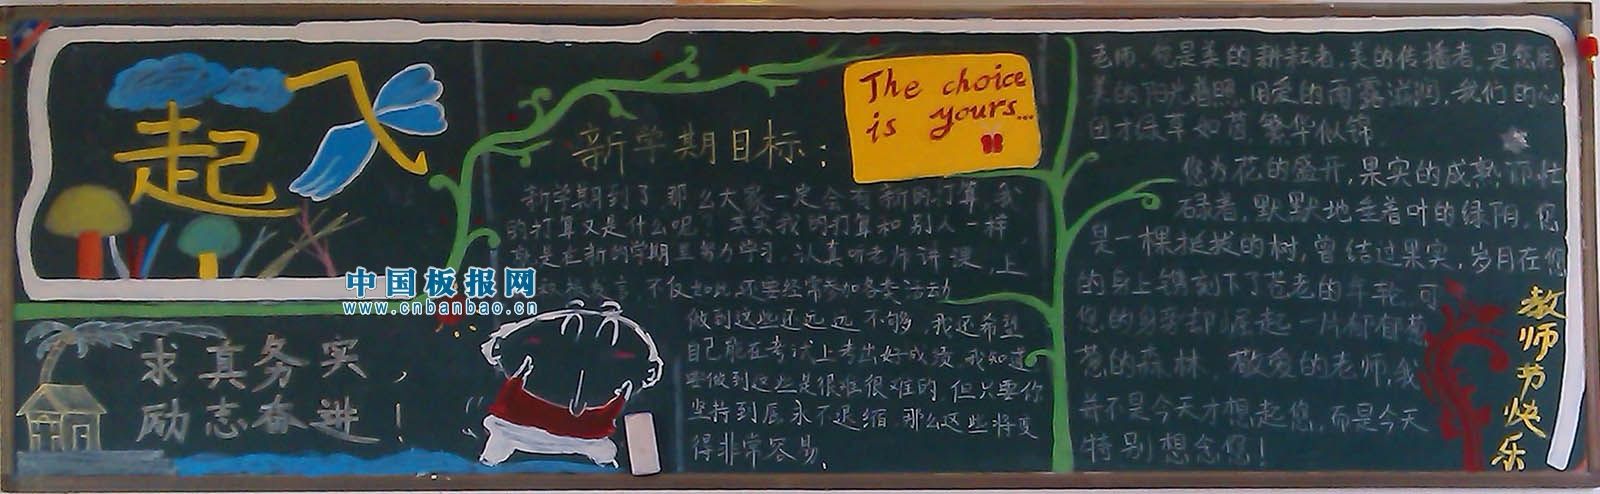 起飞
中国板报网
www.cnbanbao.cn
求真务实,
励志奋进!
新学期目标:
The choice
is yours...
新学期到了,那么大家一定会有新的打算,我
的打算又是什么呢?其实我的打算和别人一样,
就是在新的学期里努力学习,认真听老师讲课,上
发言,不仅如此,还要经常参加各类活动
做到这些还远远不够,我还希望
自己能在考试上考出好成绩,我知道
要做到这些是很难很难的,但只要你
坚持到底永不退缩,那么这些将变
得非常容易.
老师,您是美的耕耘者,美的传播者,是您用
美的阳光普照,用爱的雨露滋润,我们的心
田才绿草如茵,繁华似锦.
您为花的盛开,果实的成熟而忙
碌着,默默地垂着叶的绿阴,您
是一棵挺拔的树,曾结过果实,岁月在您
的身上镌刻下了苍老的年轮,可
您的身旁却崛起一片郁郁葱
葱的森林.敬爱的老师,我
并不是今天才想起您,而是今天
特别想念您!
教师节快乐